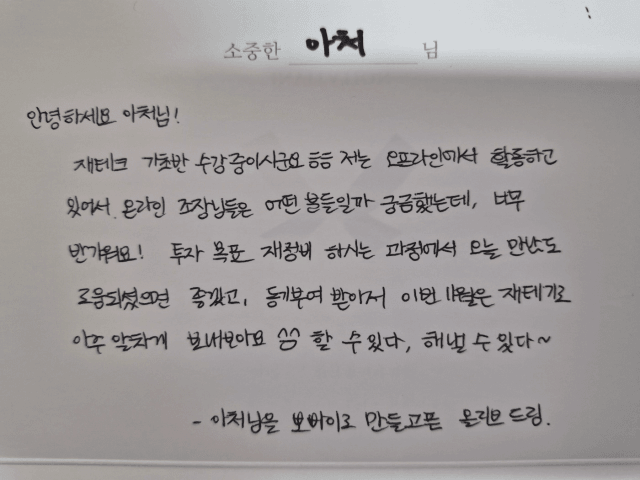 소중한 아처 님
안녕하세요 아처님!
재테크 기초반 수강중이시군요 ㅎㅎ 저는 오프라인에서 활동하고
있어서 온라인 조장님들은 어떤 분들일까 궁금했는데, 너무
반가워요! 투자 목표 재정비 하시는 과정에서 오늘 만남도
도움되셨으면 좋겠고, 동기부여 받아저 이번 11월은 재테기로
아주 알차게 보내보아요 ^^ 할 수 있다, 해낼 수 있다~
- 아처님을 보바이로 만들고픈 올리브 드림.